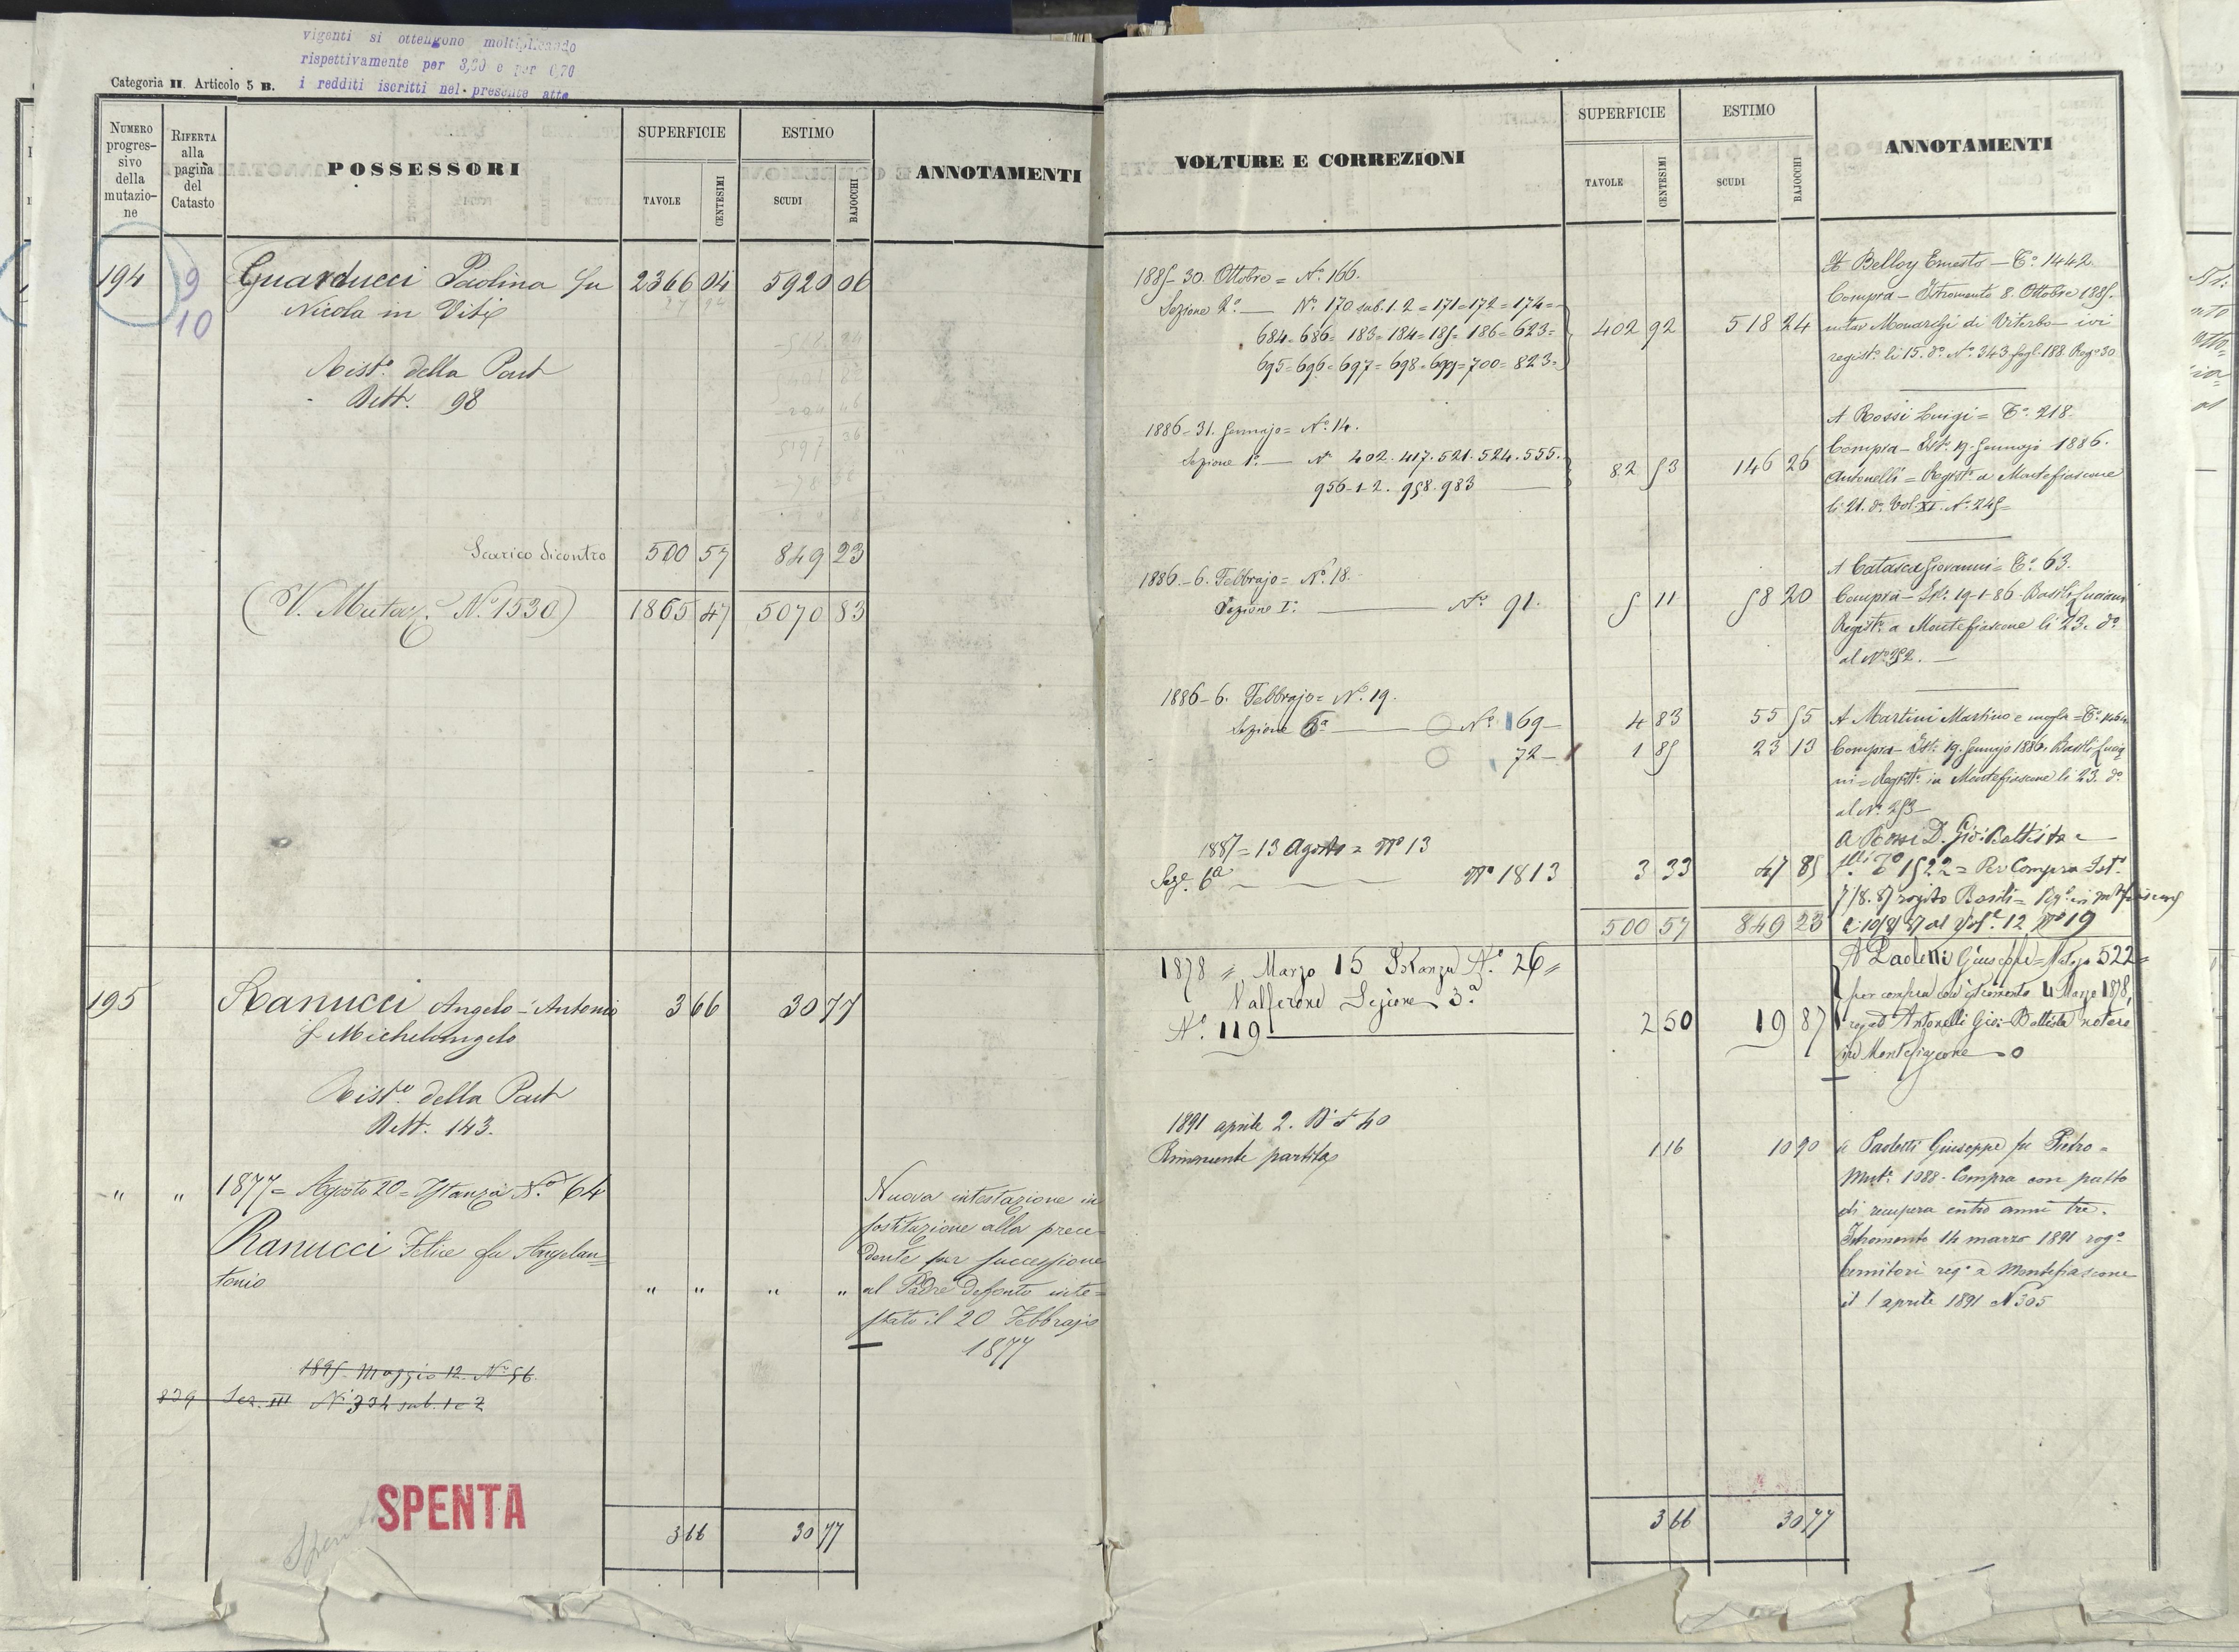 vigenti si ottengono moltiplicando
rispettivamente per 3,00 e per 0,70
i redditi iscritti nel presente atto
Categoria II. Articolo 5 B.
NUMERO progressivo della mutazione
RIFERTA alla pagina del Catasto
POSSESSORI
SUPERFICIE
TAVOLE
CENTESIMI
ESTIMO
SCUDI
BAJOCCHI
ANNOTAMENTI
194 9 Guarducci Paolina fu 2366 04 5920 06
10 Nicola in Viti
Rist.o della Part
Rett. 98
Scarico dicontro 500 57 849 23
(V. Mutaz. N.o 1530) 1865 47 5070 83
195 Ranucci Angelo-Antonio 3 66 30 77
f Michelangelo
Rist.o della Part
Rett. 143.
" " 1877 = Agosto 20 = Istanza N.o 64
Ranucci Felice fu Angelan=
tonio " " " "
Nuova intestazione in
sostituzione alla prece=
dente per successione
al Padre defonto inte=
stato il 20 Febbrajo
1877
1895 Maggio 12. N.o 56
839 Sez. III N.i 334 sub. 1 e 2
SPENTA
3 66 30 77
VOLTURE E CORREZIONI
SUPERFICIE
TAVOLE
CENTESIMI
ESTIMO
SCUDI
BAJOCCHI
ANNOTAMENTI
1885 - 30. Ottobre = N.o 166.
Sezione 2.a — N.i 170 sub. 1. 2 = 171 = 172 = 174 =
684 = 686 = 183 = 184 = 185 = 186 = 623 = 402 92 518 24
695 = 696 = 697 = 698 = 699 = 700 = 823 =
A Belloy Ernesto — T.o 1442.
Compra — Istromento 8. Ottobre 1885.
notar Monarchi di Viterbo — ivi
regist.o li 15. d.o N.o 343 fogl. 188 Reg.o 30
1886 - 31. Gennajo = N.o 14.
Sezione 1.a — N.i 402. 417. 521. 524. 555. 82 53 146 26
956-1-2. 958. 983
A Rossi Luigi = T.o 218.
Compra — Ist.o 19. Gennajo 1886.
Antonelli = Regist.o a Montefiascone
li 21. d.o Vol. XI. N.o 245 =
1886. - 6. Febbrajo = N.o 18.
Sezione I.a — N.o 91. 5 11 58 20
A Catasca Giovanni = T.o 63.
Compra — Ist.o 19-1-86. Basili
Regist.o a Montefiascone li 23. d.o
al N.o 252. —
1886 - 6. Febbrajo = N.o 19.
Sezione 6.a — N.o 169 — 4 83 55 55
72 — 1 85 23 13
A Martini Martino e moglie = T.o
Compra — Ist.o 19. Gennajo 1886. Basili
= Regist.o in Montefiascone li 23. d.o
al N.o 253
1887 = 13 Agosto = N.o 13
Sez.e 6a — N.o 1813 3 33 47 85
A Rossi D. Gio: Battista =
T.o 1522 = Per Compra Ist.o
7/8. 87 rogito Basili =
li 10/8/87 al Vol.e 12 N.o 19
500 57 849 23
1878 = Marzo 15 Istanza N.o 26 =
Valferone Sezione 3.a
N.o 119 2 50 19 87
A Paoletti Giuseppe = 522 =
per compra con istromento 4 Marzo 1878,
rog.o Antonelli Gio: Battista notaro
in Montefiascone
1891 aprile 2. N.o 40
Rimanente partita 1 16 10 90
a Paoletti Giuseppe fu Pietro =
Mut.e 1088 - Compra con patto
di recupera entro anni tre.
Istromento 14 marzo 1891 rog.o
reg.o a Montefiascone
il 1 aprile 1891 N 305
3 66 30 77